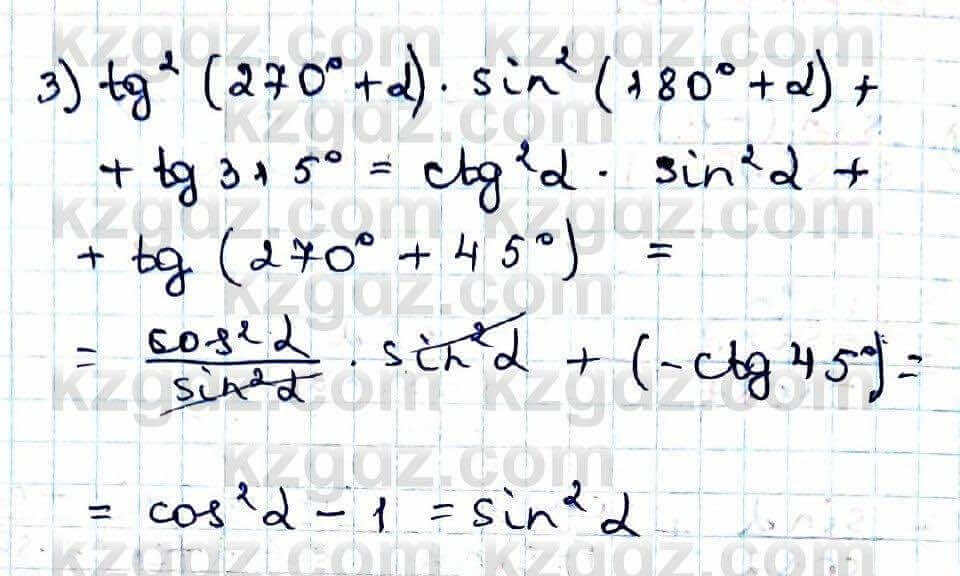 3) tg² (270° + α) · sin² (180° + α) +
+ tg 315° = ctg²α · sin²α +
+ tg (270° + 45°) =
= cos²α / sin²α · sin²α + (-ctg 45°) =
= cos²α - 1 = sin²α
kzgdz.com
kzgdz.com
kzgdz.com
kzgdz.com
kzgdz.com
kzgdz.com
kzgdz.com
kzgdz.com
kzgdz.com
kzgdz.com